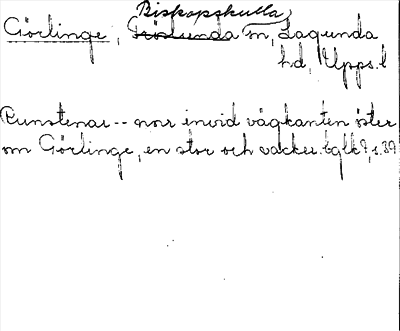 Biskopskulla
Görlinge, Frösunda sn, Lagunda
hd, Upps. l
Runstenar -- nor invid vägkanten öster
om Görlinge, en stor och vacker.